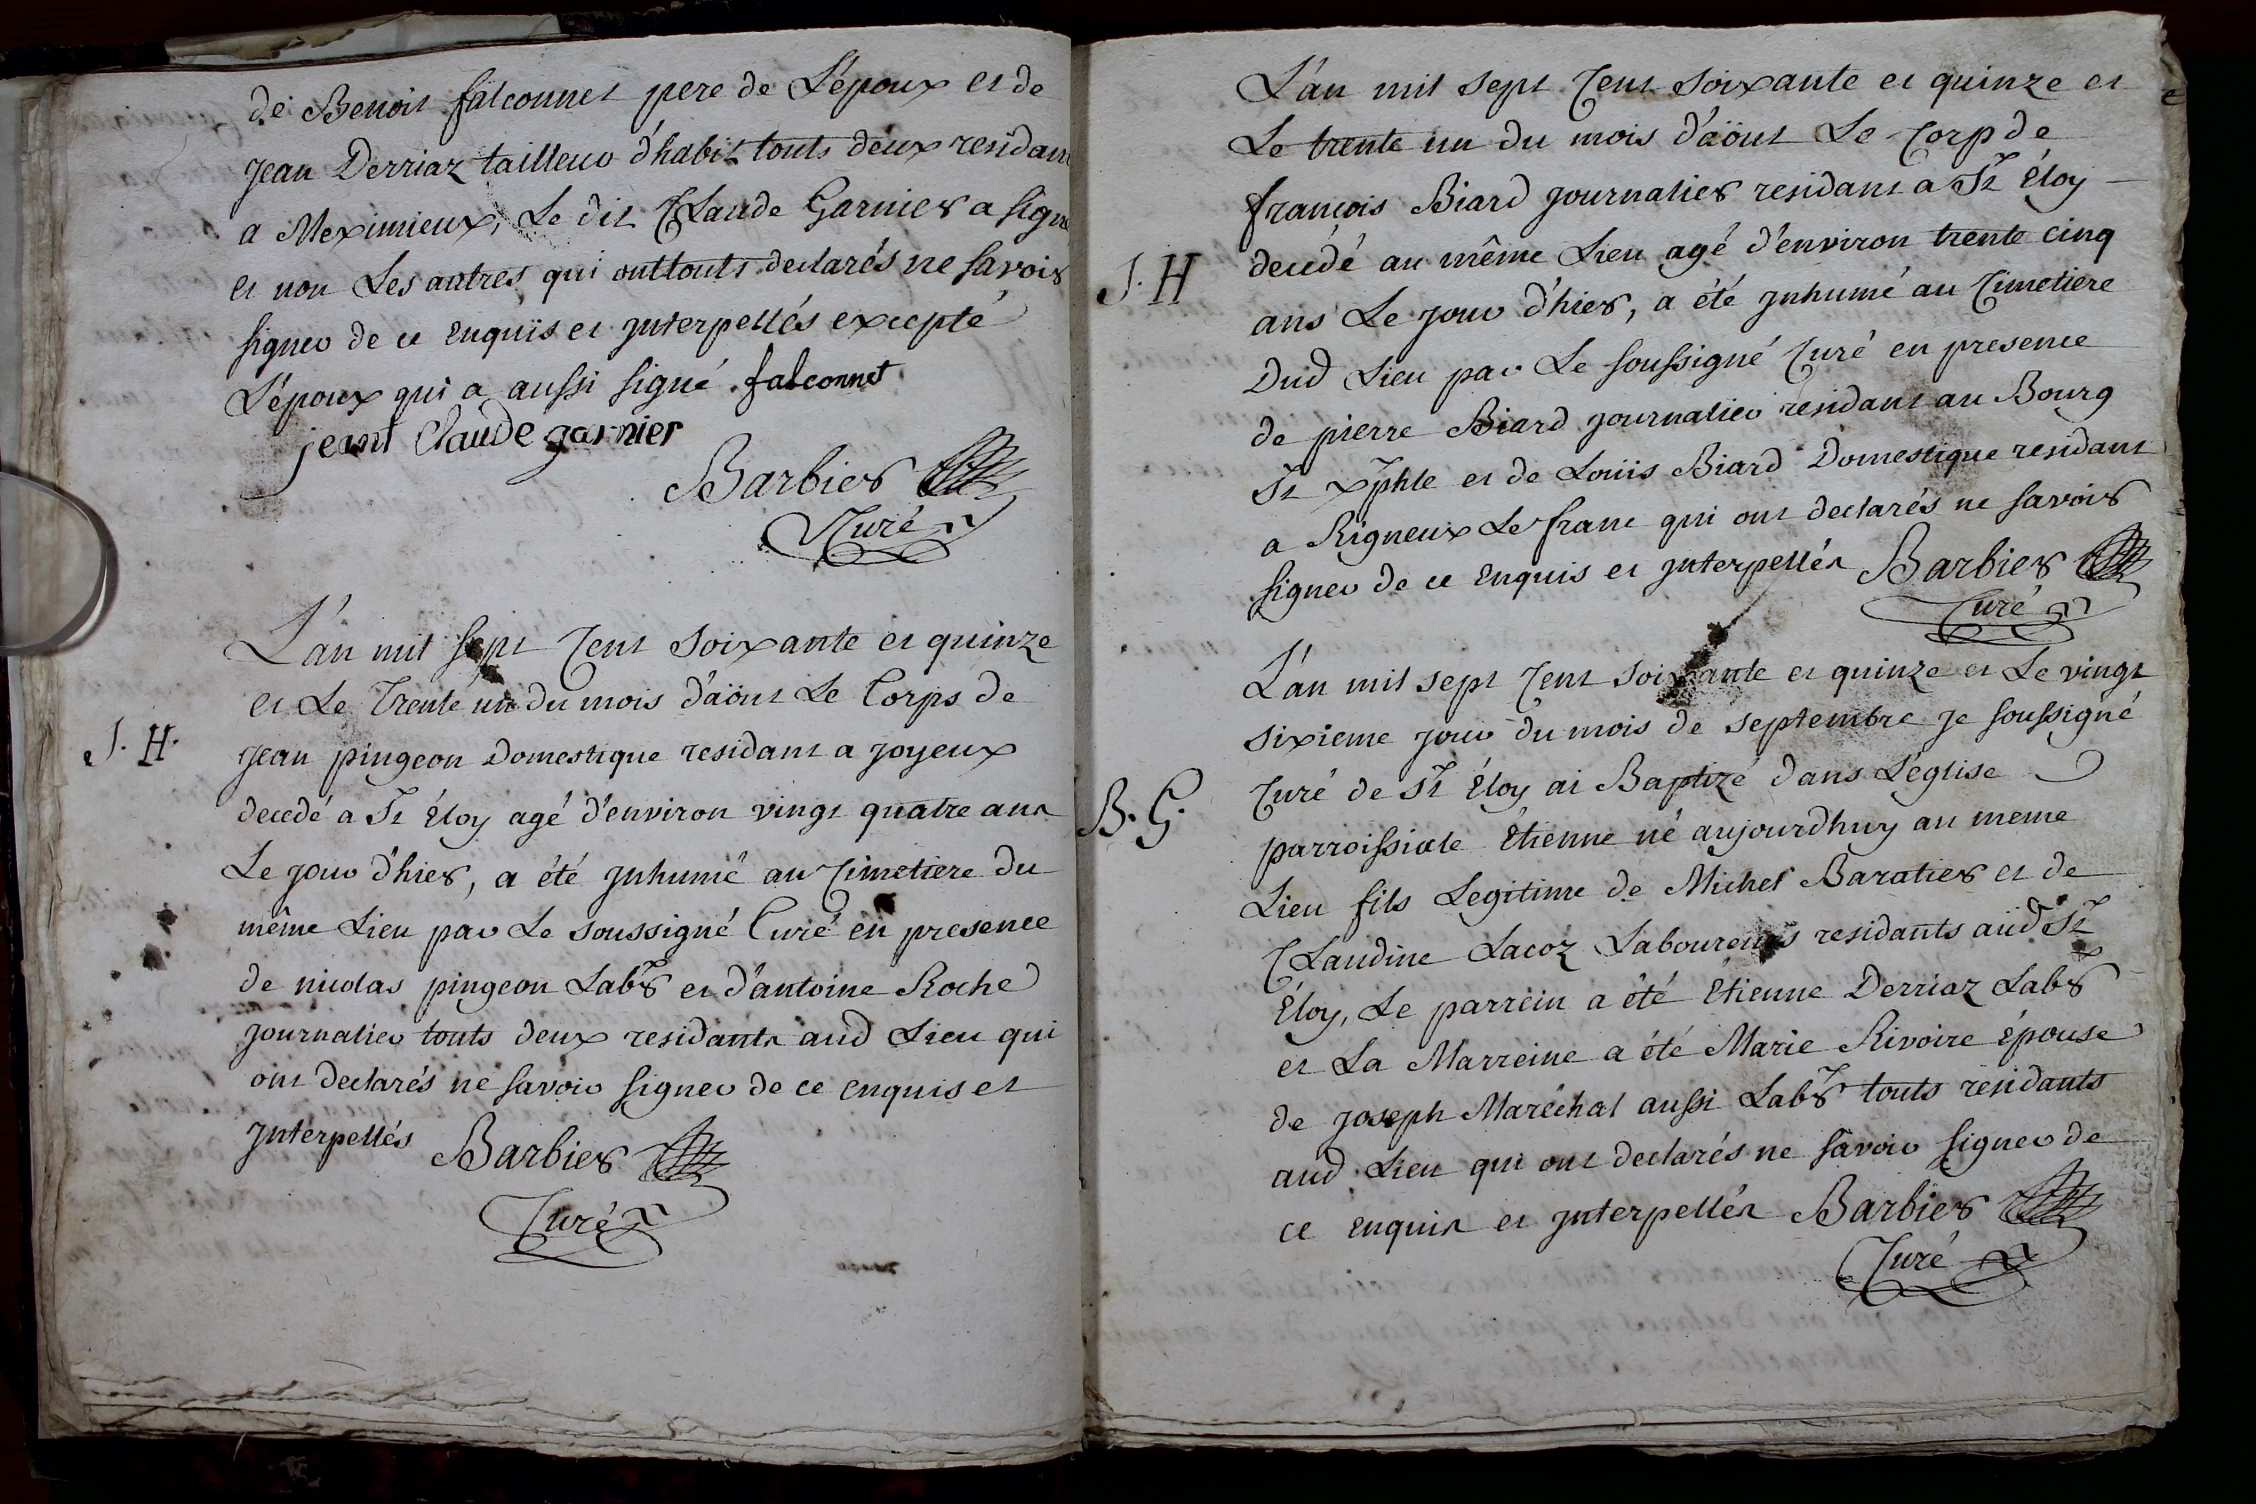 de Benoit falconnet pere de L'époux et de
Jean Derriaz tailleur d'habit touts deux residant
a Meximieux, Le dit Claude Garnier a signé
et non Les autres qui ont touts declarés ne savoir
signer de ce enquis et interpellés excepté
L'époux qui a aussi signé . falconnet
jeant Claude garnier
Barbier
Curé
L'an mil sept Cent soixante et quinze
et Le Trente un du mois d'aöut Le Corps de
J. H.
Jean pingeon Domestique residant a joyeux
decedé a St Éloy agé d'environ vingt quatre ans
Le jour d'hier, a été inhumé au Cimetiere du
même Lieu par Le soussigné Curé en presence
de nicolas pingeon Labr et d'antoine Roche
journalier touts deux residants aud Lieu qui
ont declarés ne savoir signer de ce enquis et
interpellés Barbier
Curé
L'an mil sept Cent soixante et quinze et
Le trente un du mois d'aöut Le Corp de
françois Biard journalier residant a St Éloy
J. H
decedé au même Lieu agé d'environ trente cinq
ans Le jour d'hier, a été inhumé au Cimetiere
Dud Lieu par Le soussigné Curé en presence
de pierre Biard journalier residant au Bourg
St xphle et de Louis Biard Domestique residant
a Rigneux Le franc qui ont declarés ne savoir
signer de ce enquis et interpellés Barbier
Curé
L'an mil sept Cent soixante et quinze et Le vingt
sixieme jour du mois de septembre je soussigné
B. G.
Curé de St Éloy ai Baptizé dans L'église
parroissiale Étienne né aujourdhuy au meme
Lieu fils Legitime de Michel Baratier et de
Claudine Lacoz Laboureurs residants aüd St
Éloy, Le parrein a été Étienne Derriaz Labr
et La Marreine a été Marie Rivoire épouse
de joseph Maréchal aussi Labr touts residants
aud Lieu qui ont declarés ne savoir signer de
ce enquis et interpellés Barbier
Curé